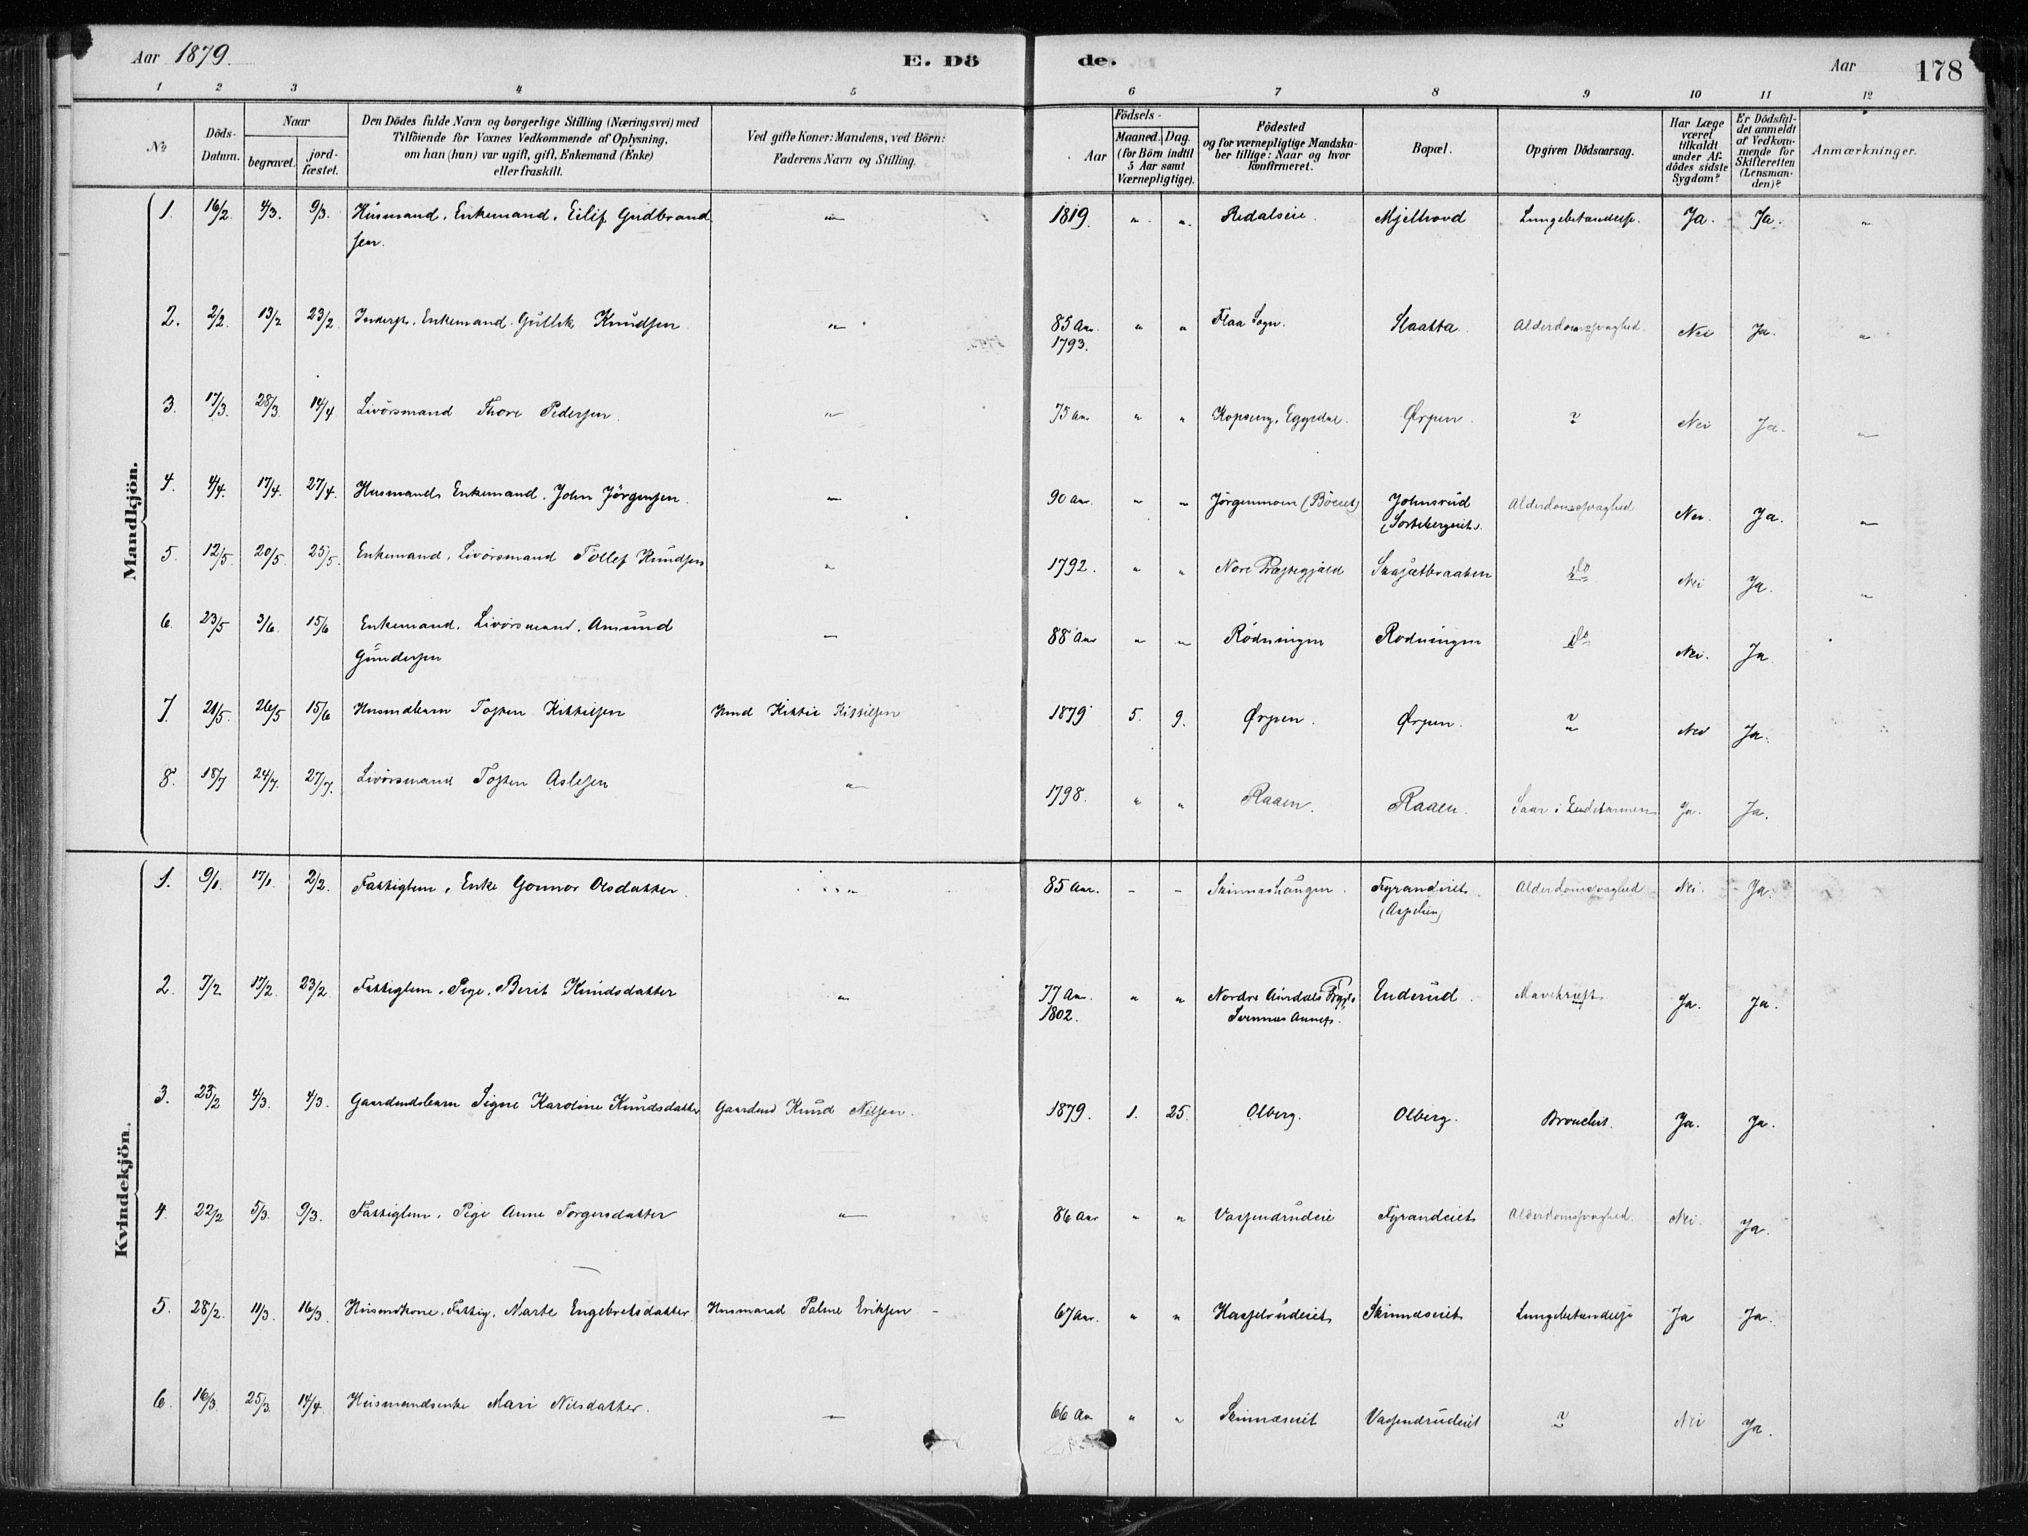 Aar 1879. E. Dö de. Aar 178
1 2 3 4 5 6 7 8 9 10 11 12
№ Döds-Datum. Naar begravet. jord-fæstet. Den Dödes fulde Navn og borgerlige Stilling (Næringsvei) med Tilföiende for Voxnes Vedkommende af Oplysning, om han (hun) var ugift, gift, Enkemand (Enke) eller fraskilt. Ved gifte Koner: Mandens, ved Börn: Faderens Navn og Stilling. Födsels- Aar Maaned. Dag. (for Börn indtil 5 Aar samt Værnepligtige). Födested og for værnepligtige Mandskaber tillige: Naar og hvor konfirmeret. Bopæl. Opgiven Dödsaarsag. Har Læge været tilkaldt under Afdödes sidste Sygdom? Er Dödsfaldet anmeldt af Vedkommende for Skifteretten (Lensmanden)? Anmærkninger.
Mandkjön.
1. 16/2 4/3. 9/3. Husmand, Enkemand, Eilif Gudbrand " 1819. " " Redalseie Mjeltrovd Lungebetændelse. Ja. Ja. "
sen.
2. 2/2. 13/2 23/2 Enkemand Gullik Knudsen " 85 Aar. " " Flaa Sogn. Slaatta Alderdomssvaghed. Nei Ja. "
1793.
3. 17/3. 28/3. 14/4 Livörsmand Thore Pedersen. " 75 Aar " " Kopseng, Eggedal. Ørpen. Nei Ja. "
4. 4/4. 17/4. 27/4. Husmands Enkemand, John Jörgensen. " 90 Aar. " " Jörgenmoen (Böeiet) Johnsrud Alderdomssvaghed Nei. Ja. "
(Sortebergeiet).
5. 12/5. 20/5. 25/5. Enkemand, Livörsmand Tollef Knudsen " 1792. " " Nore Præstegjæld do Nei Ja. "
6. 23/5 3/6. 15/6 Enkemand, Livörsmand, Amund " 88 Aar " " Rödningen Rodningen do Nei. Ja
Gundersen
7. 21/5. 26/5 15/6 Husmdbarn Tosten Kittilsen Husmd Kittil Kittilsen 1879 5. 9. Ørpen. Ørpen. Nei Ja.
8. 18/7 24/7. 27/7. Livörsmand Tosten Aslesen " 1798. " " Raaen. Raaen. Saar i Endetarmen Ja. Ja.
Kvindekjön.
1. 9/1. 17/1. 2/2. Fattiglem, Enke Gonnor Olsdatter. " 85 Aar. - - Skinnashaugen. Fyrandeiet. Alderdomssvaghed Nei. Ja.
(Aspelien)
2. 7/2 17/2. 23/2 Fattiglem, Pige, Berit Knudsdatter " 77 Aar. " " Nordre Aurdals Enderud. Mavekræft Ja. Ja.
1802. Svennæs Annex.
3. 23/2 4/3. 4/3. Gaardmdsbarn Signe Karoline Knudsdatter Gaardmd Knud Nilsen. 1879. 1. 25. Olberg. Olberg. Bronchit. Ja. Ja.
4. 22/2 5/3. 9/3. Fattiglem, Pige Anne Torgersdatter " 86 Aar " " Vassendrudeie Fyrandeiet Alderdomssvaghed. Nei. Ja.
5. 28/2. 11/3. 16/3. Husmdkone, Fattig, Marte Engebretsdatter Husmand Palme Eriksen 67 Aar. " " Hasselrudeiet Skrindseiet Lungebetændelse Ja Ja.
6. 16/3. 25/3. 14/4. Husmandsenke Mari Nilsdatter. " 66 Aar " " Skinnæseiet Vassendrudeiet Nei Ja.